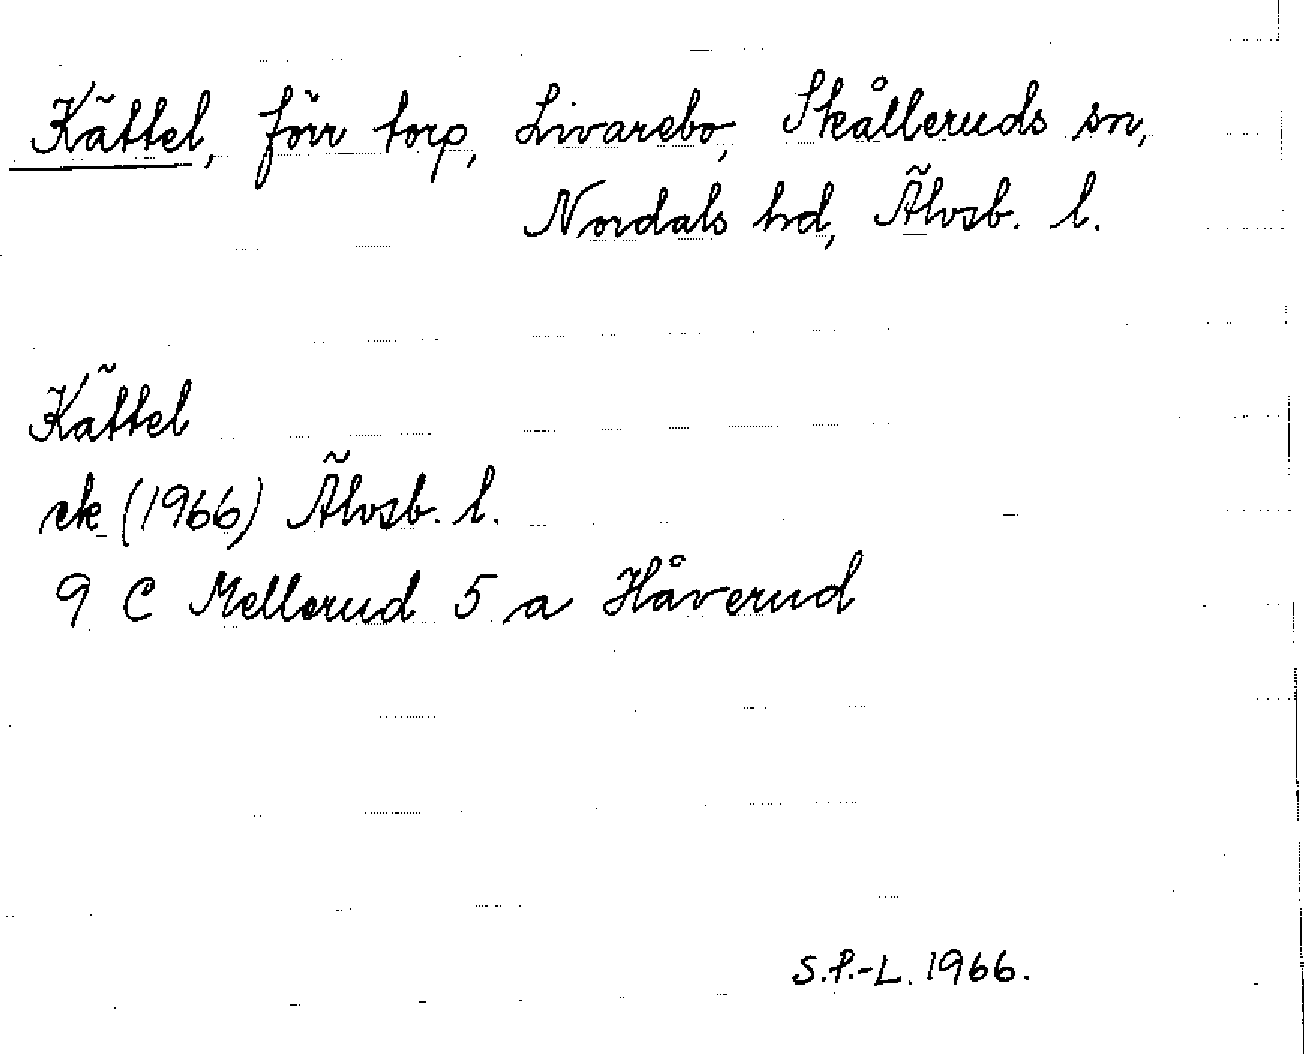 Kättel, förr torp, Livarebo, Skålleruds sn,
Nordals hd, Älvsb. l.
Kättel
ek (1966) Älvsb. l.
9 C Mellerud 5 a Håverud
S.P.-L. 1966.